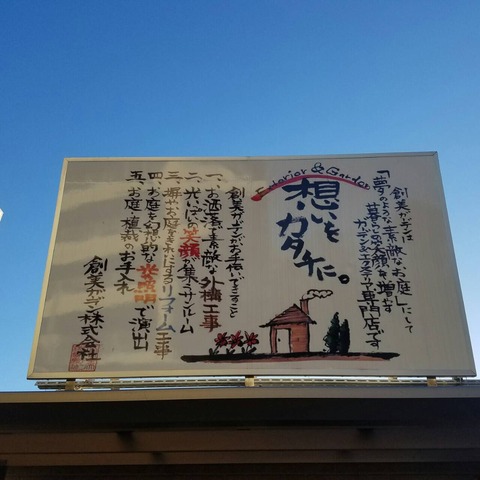 創美ガーデンは
「夢のような素敵なお庭」にして
暮らしの笑顔を増やす
ガーデン&エクステリア専門店です
Exterior & Garden
想いを
カタチに。
創美ガーデンがお手伝いできること
一、お洒落で素敵な外構工事
二、光いっぱいの笑顔が集うサンルーム
三、塀やお庭をきれいにするリフォーム工事
四、お庭を幻想的な光照明で演出
五、お庭・植栽のお手入れ
創美ガーデン株式会社